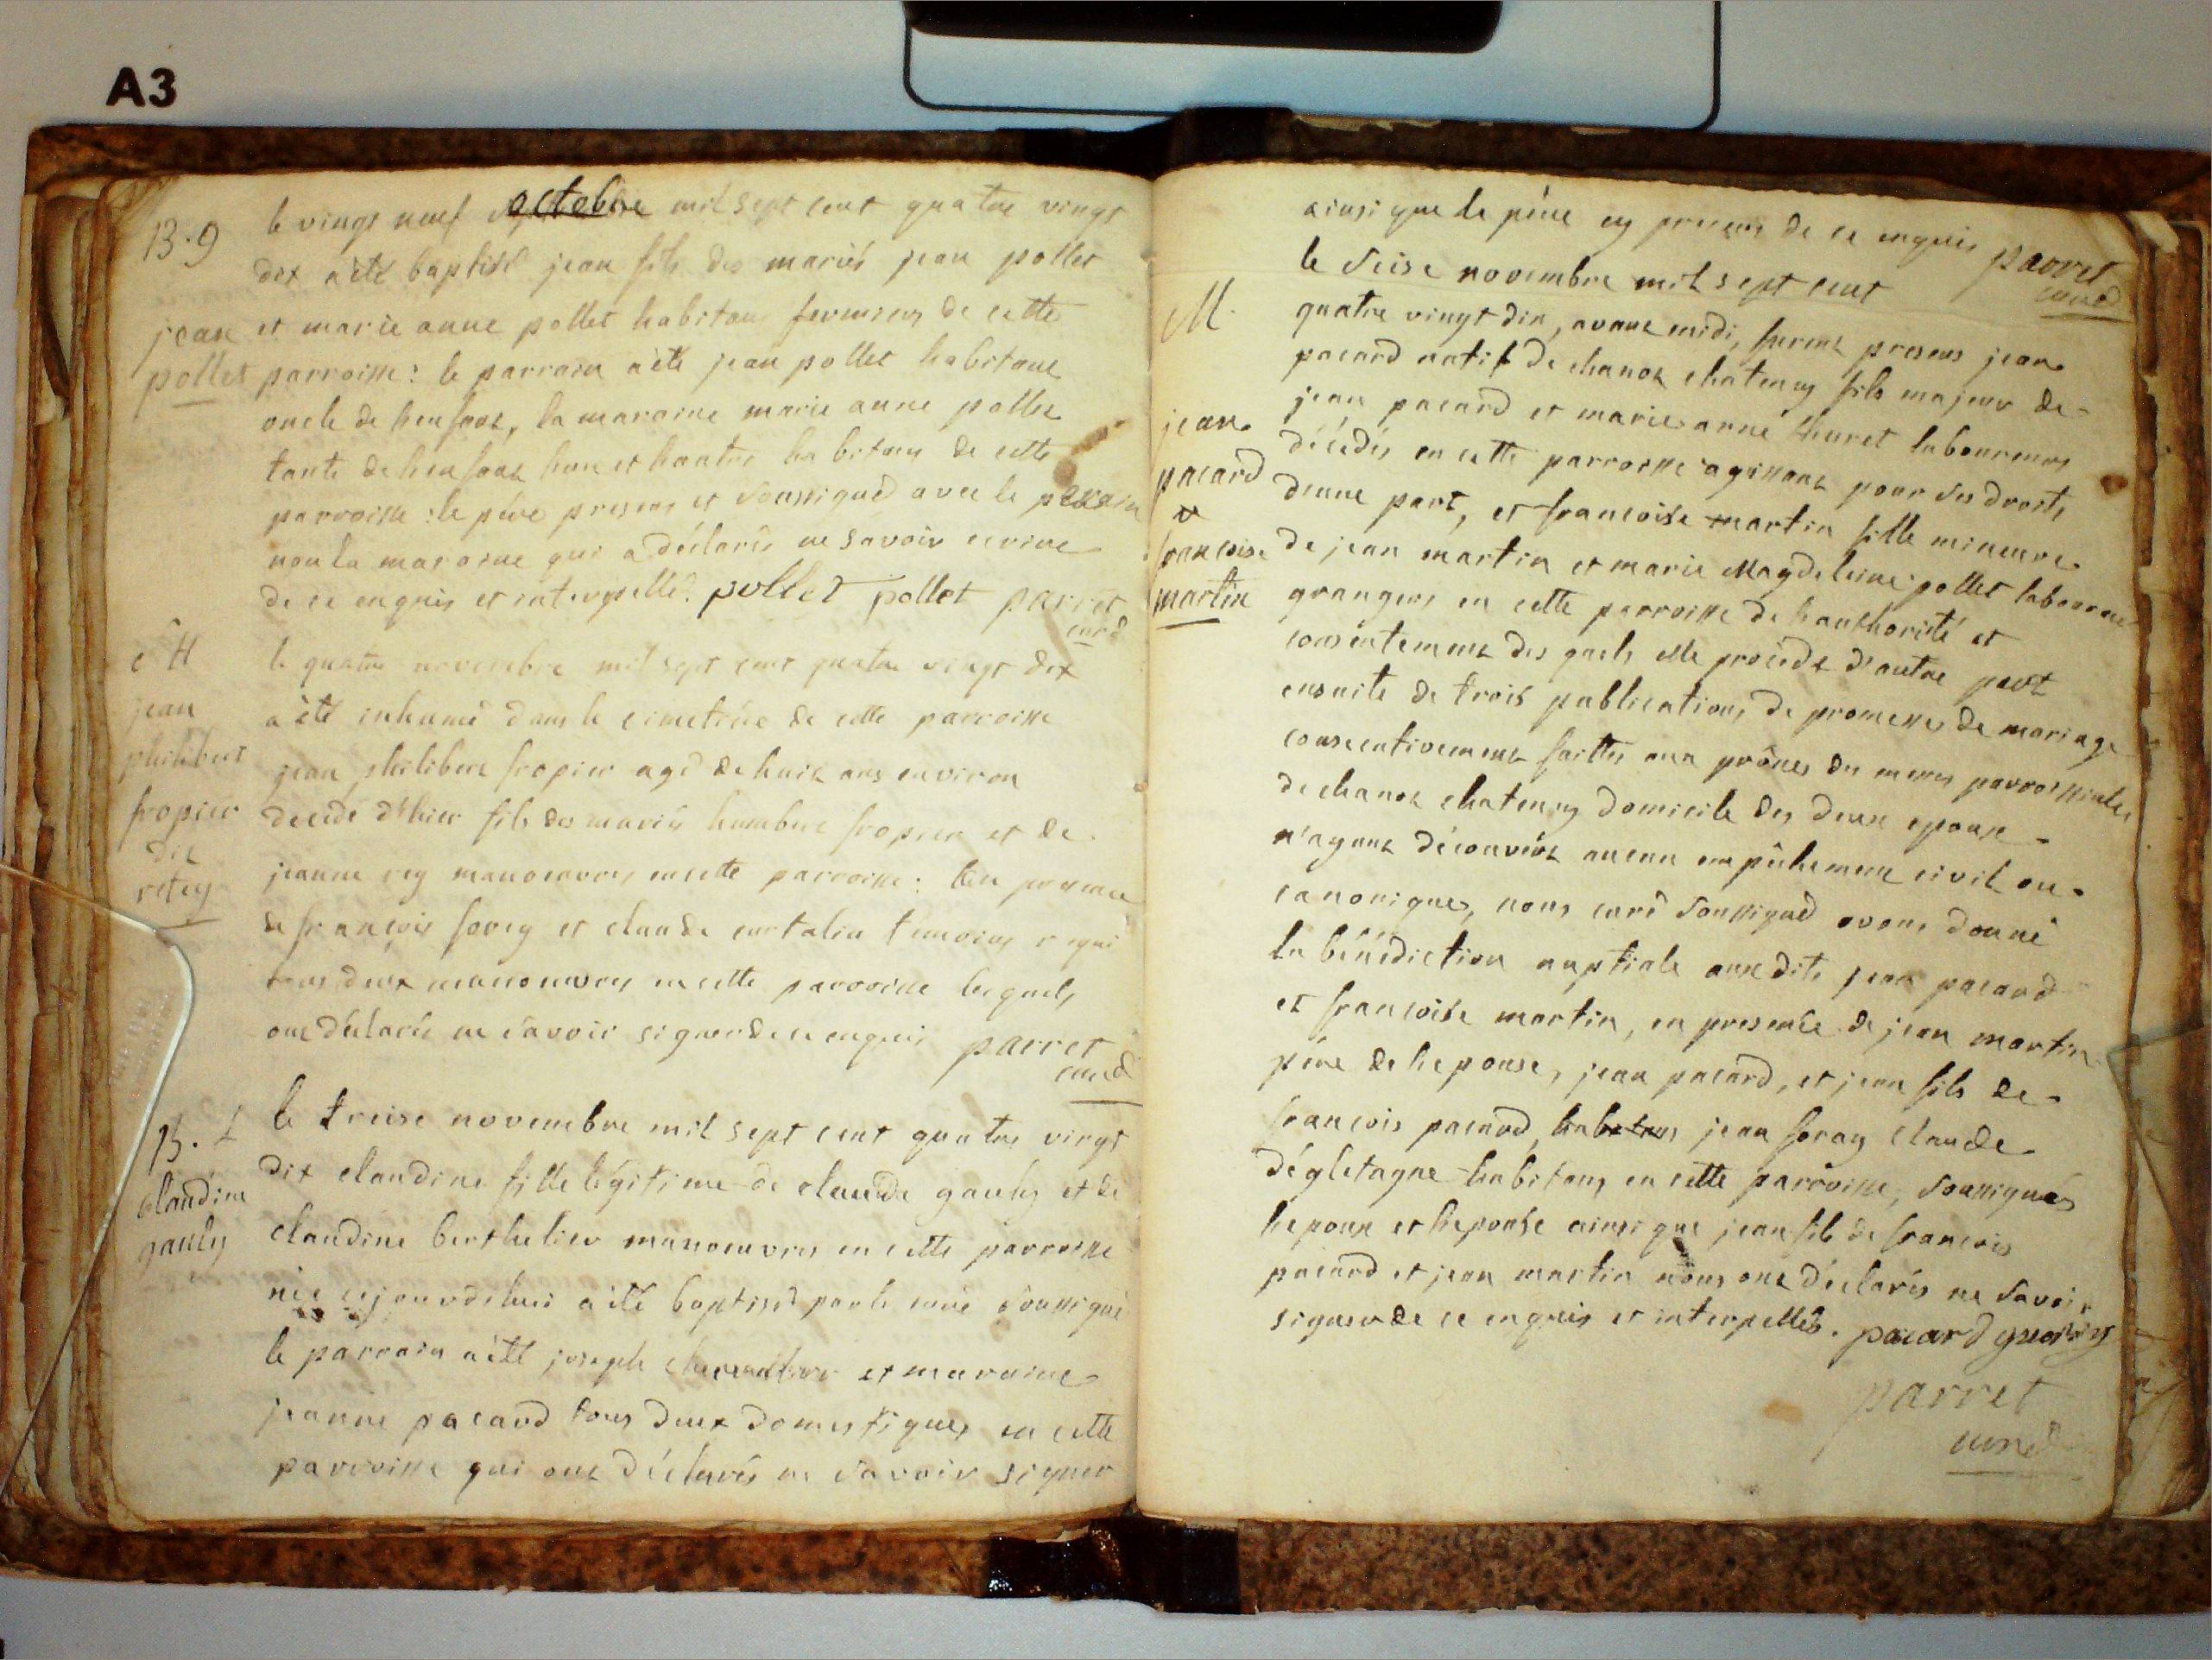 A3
13.9
jean
pollet
le vingt neuf octobre mil sept cent quatre vingt
dix a èté baptisé jean fils des mariés jean pollet
et marie anne pollet habitans fermiers de cette
parroisse: le parrain a èté jean pollet habitant
oncle de l'enfant, la maraine marie anne pollet
tante de l'enfant l'un et l'autre habitans de cette
parroisse: le père present et soussigné avec le parrain
non la maraine qui a déclarée ne savoir ecrire
de ce enquis et interpellé. pollet pollet parret
curé
H
jean
philibert
fropier
dit
retey
le quatre novembre mil sept cent quatre vingt dix
a èté inhumé dans le cimetière de cette parroisse
jean philibert fropier agé de huit ans environ
decedé d'hier fils des mariés humbert fropier et de
jeanne rey manoeuvres en cette parroisse: en presence
de françois forey et claude curtalin temoins requis
tous deux manoeuvres en cette parroisse lesquels
ont déclarés ne savoir signer de ce enquis parret
curé
13. L
claudine
gauly
le treise novembre mil sept cent quatre vingt
dix claudine fille légitime de claude gauly et de
claudine berthelier manoeuvres en cette parroisse
née cejourdhui a èté baptisée par le curé soussigné
le parrain a èté joseph et maraine
jeanne pacard tous deux domestiques en cette
parroisse qui ont déclarés ne savoir signer
ainsi que le père de ce enquis parret
curé
M.
jean
pacard
et
francoise
martin
le seise novembre mil sept cent
quatre vingt dix, avant midi, furent presens jean
pacard natif de chanoz chatenay fils majeur de
jean pacard et marie anne thuret laboureurs
décédés en cette parroisse agissant pour ses droits
d'une part, et francoise martin fille mineure
de jean martin et marie magdeleine pollet laboureurs
grangers en cette parroisse de l'authorité et
consentement des quels elle procède d'autre part
ensuite de trois publications de promesses de mariage
consecutivement faittes aux prônes des messes parroissiales
de chanoz chatenay domicile des deux epoux
n'ayant découvert aucun empêchement civil ou
canonique, nous curé soussigné avons donné
la bénédiction nuptiale aux dits jean pacard
et francoise martin, en presence de jean martin
père de l'epouse, jean pacard, et jean fils de
françois pacard, habitans jean foray claude
dégletagne habitans en cette parroisse, soussignés
l'epoux et l'epouse ainsi que jean fils de françois
pacard et jean martin nous ont déclarés ne savoir
signer de ce enquis et interpellés. pacard
parret
curé